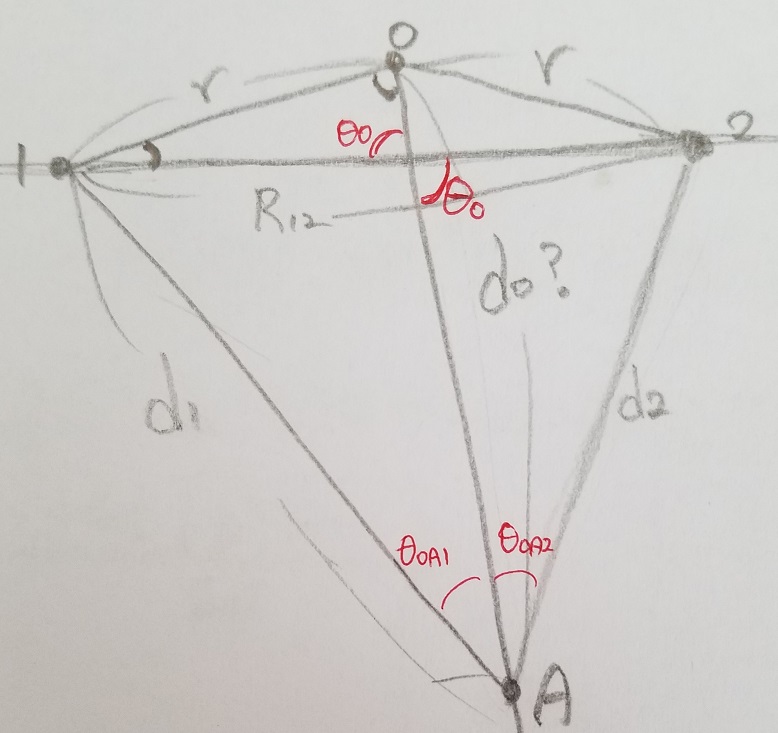 0
r
r
1
2
θ0
θ0
R12
d0?
d1
d2
θ0A1
θ0A2
A